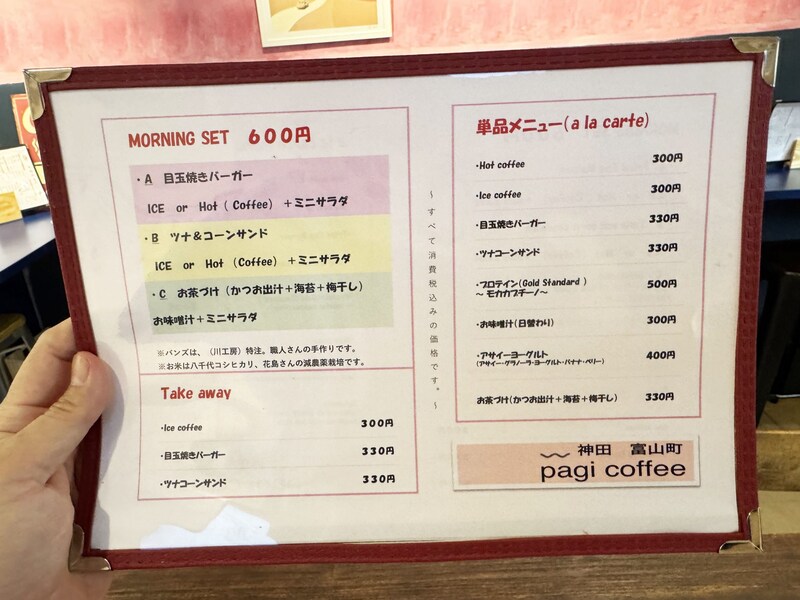 MORNING SET 600円
・A 目玉焼きバーガー
ICE or Hot ( Coffee) +ミニサラダ
・B ツナ＆コーンサンド
ICE or Hot (Coffee) +ミニサラダ
・C お茶づけ(かつお出汁+海苔+梅干し)
お味噌汁+ミニサラダ
※バンズは、(川工房)特注。職人さんの手作りです。
※お米は八千代コシヒカリ、花島さんの減農薬栽培です。
Take away
・Ice coffee 300円
・目玉焼きバーガー 330円
・ツナコーンサンド 330円
～すべて消費税込みの価格です。～
単品メニュー(a la carte)
・Hot coffee 300円
・Ice coffee 300円
・目玉焼きバーガー 330円
・ツナコーンサンド 330円
・プロテイン(Gold Standard ) 500円
～ モカカプチーノ～
・お味噌汁(日替わり) 300円
・アサイーヨーグルト 400円
(アサイー・グラノーラ・ヨーグルト・バナナ・ベリー)
お茶づけ(かつお出汁+海苔+梅干し) 330円
神田 富山町
pagi coffee